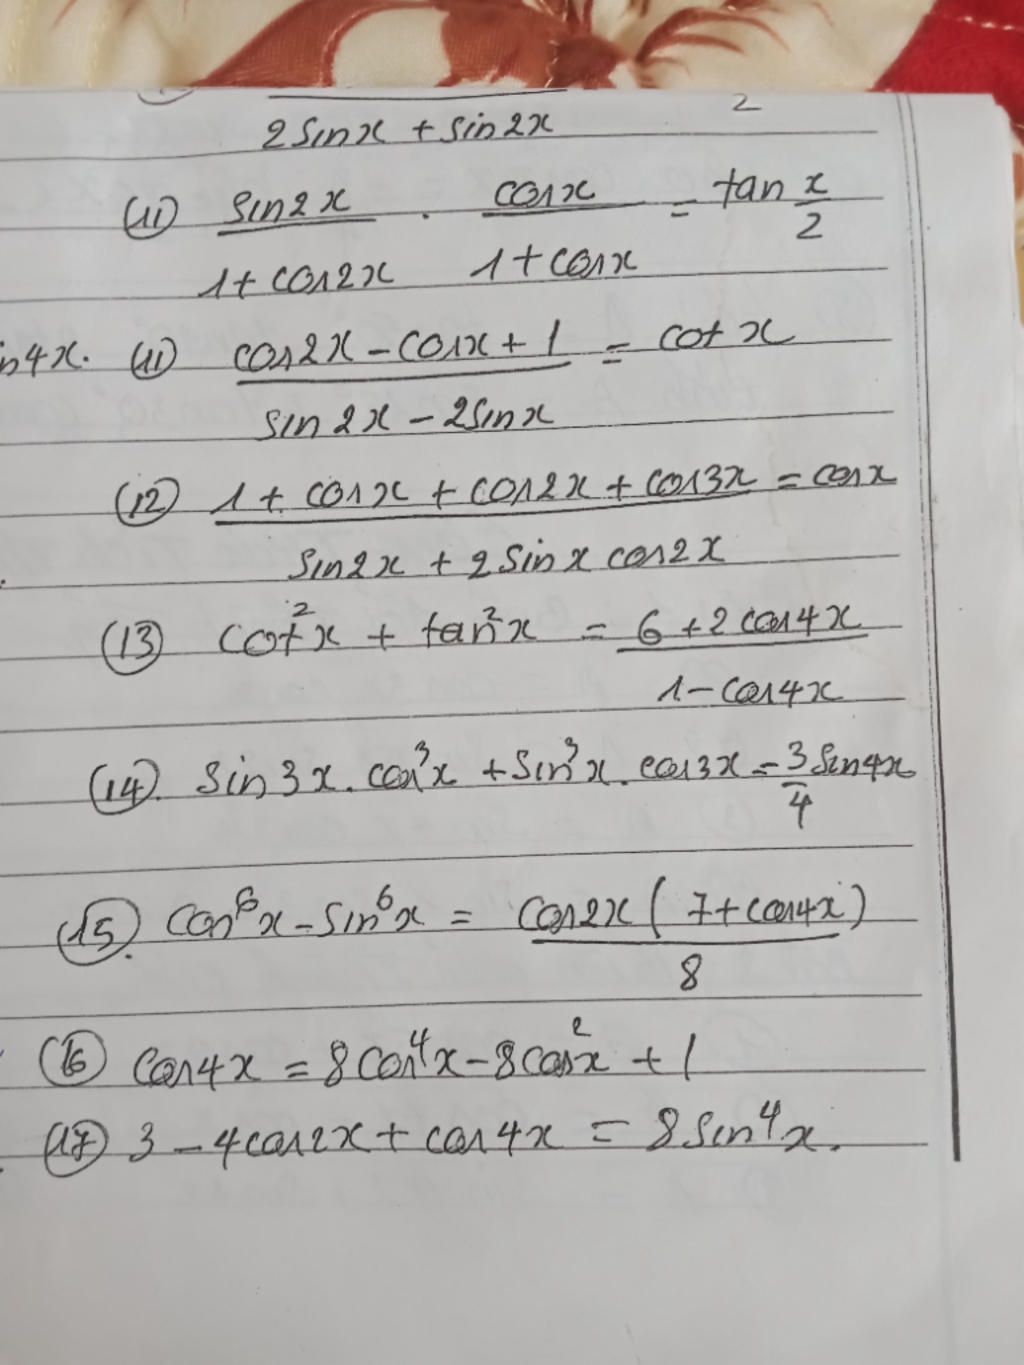 2
2 sin x + sin 2x
(11) sin2x / 1+cos2x . cosx / 1+cosx = tan x/2
n4x. (11) cos2x – cosx + 1 / sin2x – 2sinx = cot x
(12) 1 + cosx + cos2x + cos3x / sin2x + 2 sin x cos2x = cosx
(13) cot²x + tan²x = 6 + 2 cos4x / 1 – cos4x
(14). sin 3x. cos³x + sin³x. cos3x = 3/4 sin4x
(15). cos⁶x – sin⁶x = cos2x ( 7 + cos4x ) / 8
(16) cos4x = 8cos⁴x – 8cos²x + 1
(17) 3 – 4cos2x + cos4x = 8 sin⁴x.